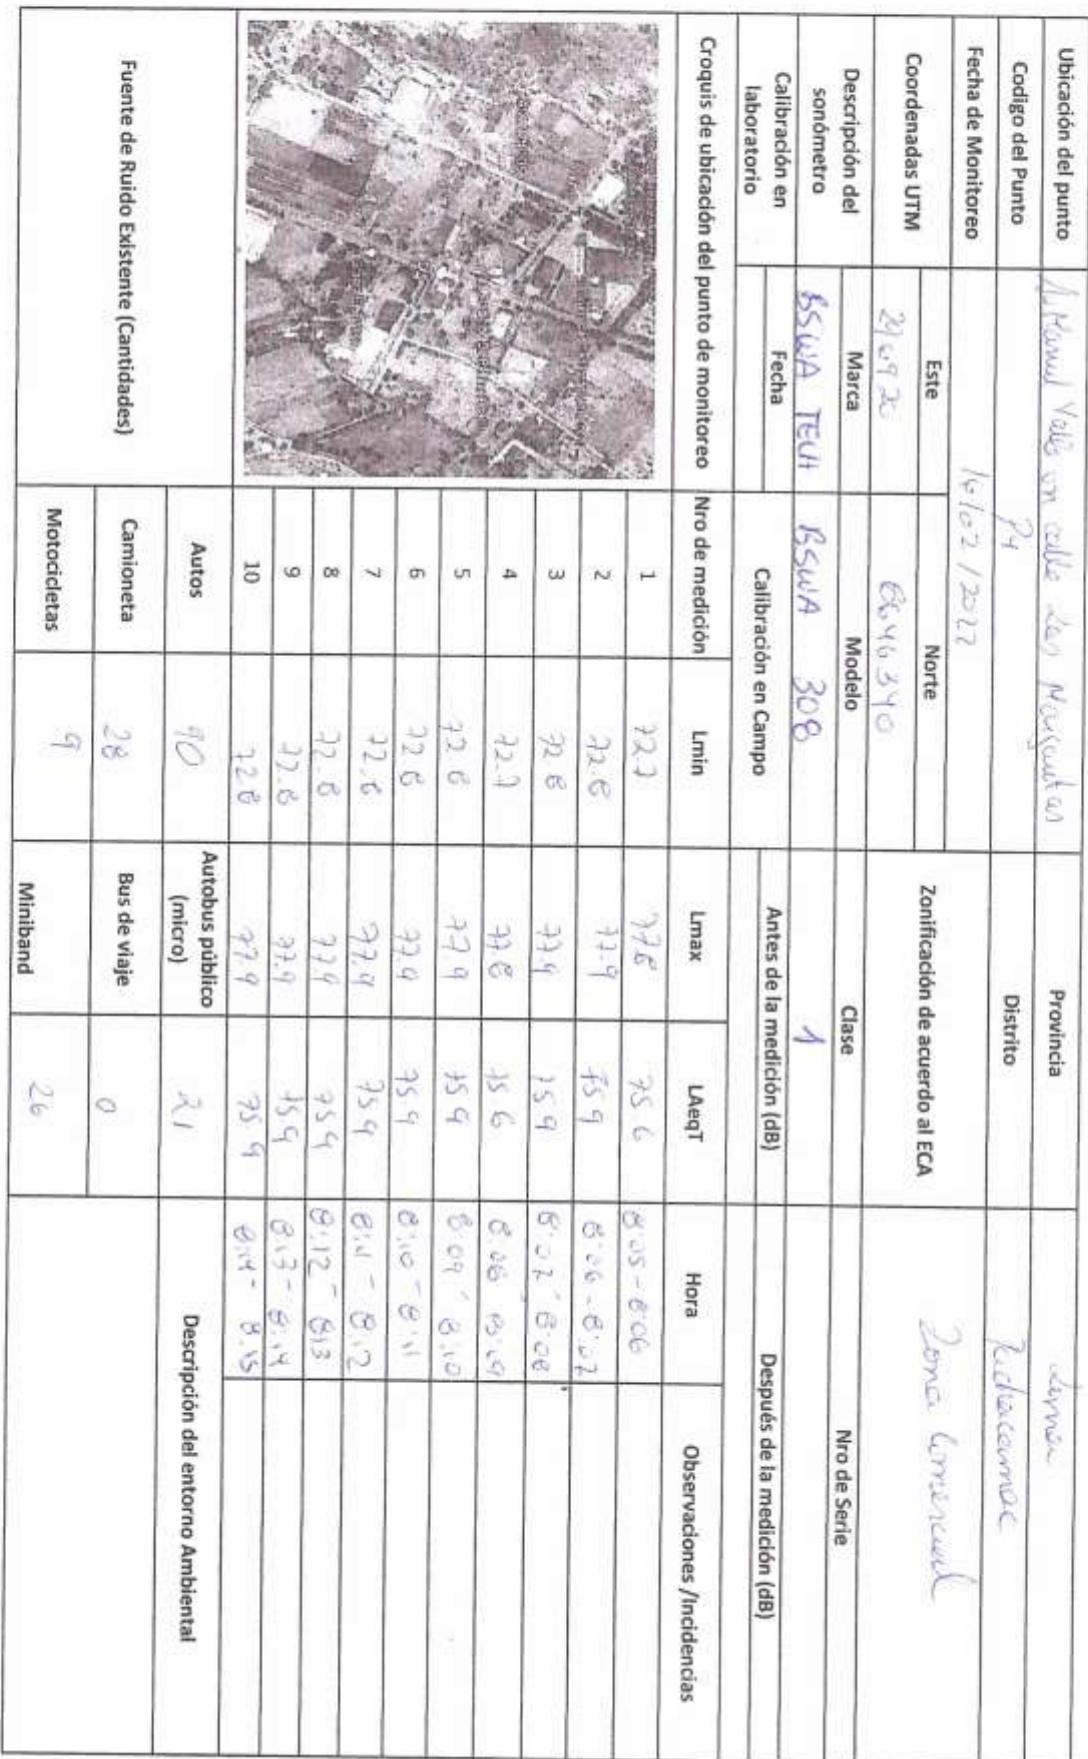 Ubicación del punto Manuel Valle con calle Las Provincia Lima
Codigo del Punto P4 Distrito Pachacamac
Fecha de Monitoreo 16/02/2022
Coordenadas UTM Este Norte Zonificación de acuerdo al ECA Zona Comercial
8646340
Descripción del sonómetro Marca Modelo Clase Nro de Serie
BSWA TECH BSWA 308 1
Calibración en laboratorio Fecha Calibración en Campo Antes de la medición (dB) Después de la medición (dB)
Croquis de ubicación del punto de monitoreo Nro de medición Lmin Lmax LAeqT Hora Observaciones /Incidencias
1 72.7 77.8 75.6 8:05 - 8:06
2 72.8 77.9 75.9 8:06 - 8:07
3 72.8 77.9 75.9 8:07 - 8:08
4 72.7 77.8 75.6 8:08 - 8:09
5 72.8 77.9 75.9 8:09 - 8:10
6 72.8 77.9 75.9 8:10 - 8:11
7 72.8 77.9 75.9 8:11 - 8:12
8 72.8 77.9 75.9 8:12 - 8:13
9 72.8 77.9 75.9 8:13 - 8:14
10 72.8 77.9 75.9 8:14 - 8:15
Fuente de Ruido Existente (Cantidades) Autos 90 Autobus público (micro) 21 Descripción del entorno Ambiental
Camioneta 28 Bus de viaje 0
Motocicletas 9 Miniband 26